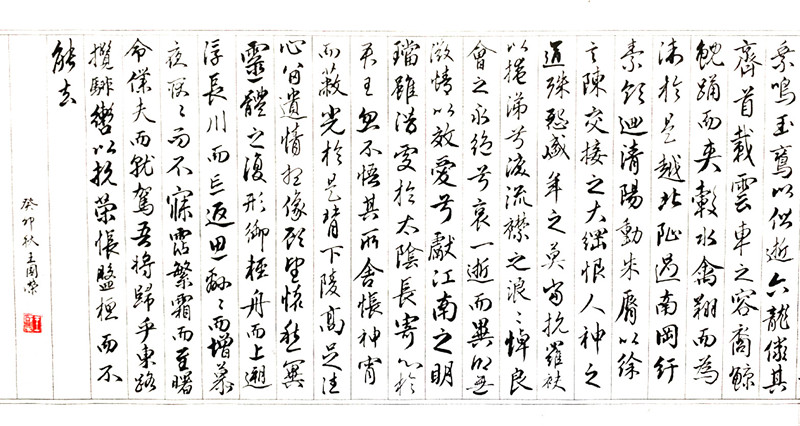 乘鳴玉鸞以偕逝六龍儼其
齊首載雲車之容裔鯨
鯢踊而夾轂水禽翔而為
衛於是越北沚過南岡紆
素領迴清陽動朱脣以徐
言陳交接之大綱恨人神之
道殊怨盛年之莫當抗羅袂
以掩涕兮淚流襟之浪〻悼良
會之永絕兮哀一逝而異鄉無
微情以效愛兮獻江南之明
璫雖潛處於太陰長寄心於
君王忽不悟其所舍悵神宵
而蔽光於是背下陵高足往
心留遺情想像顧望懷愁冀
靈體之復形御輕舟而上遡
浮長川而忘返思綿〻而增慕
夜耿〻而不寐霑繁霜而至曙
命僕夫而就駕吾將歸乎東路
攬騑轡以抗策悵盤桓而不
能去
癸卯秋王國榮